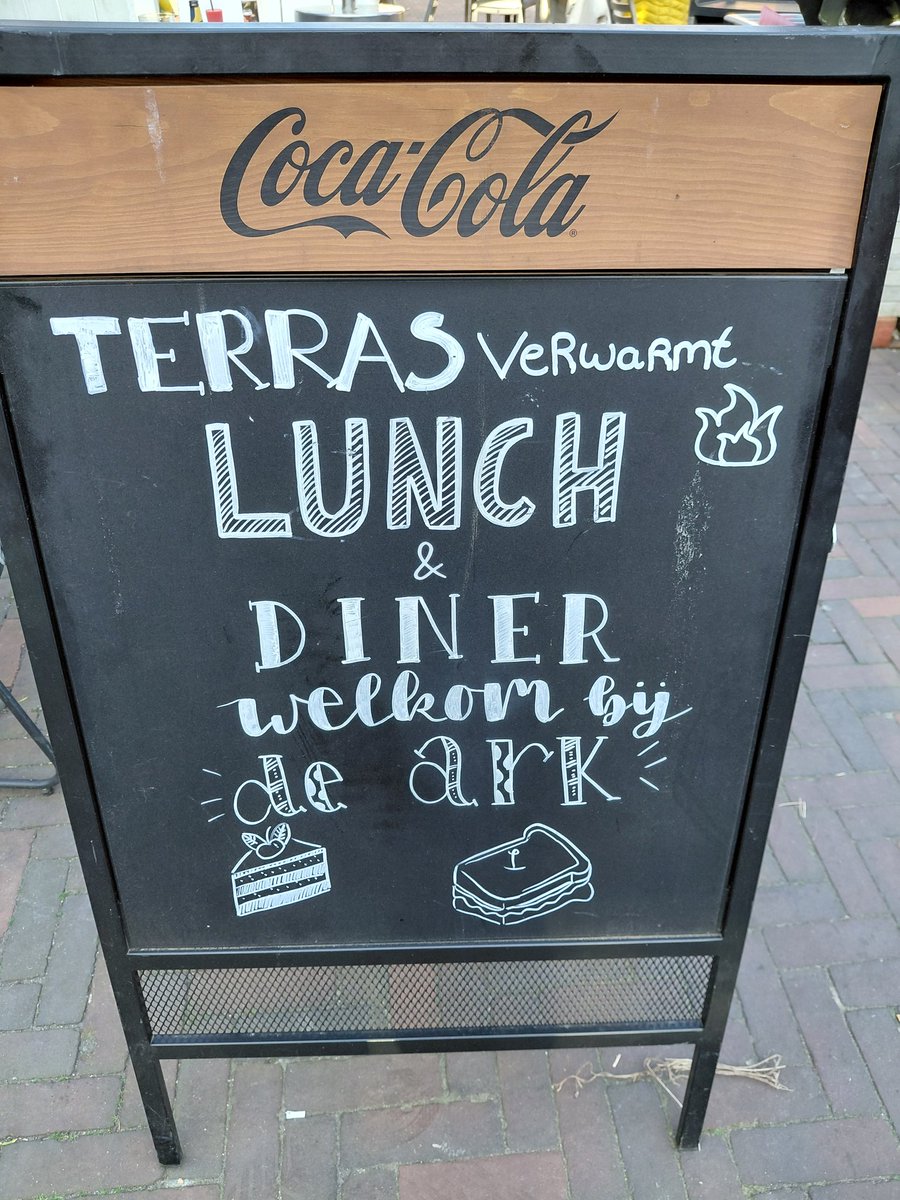 Coca-Cola
TERRAS VeRwaRmt
LUNCH
&
DINER
welkom bij
de ark